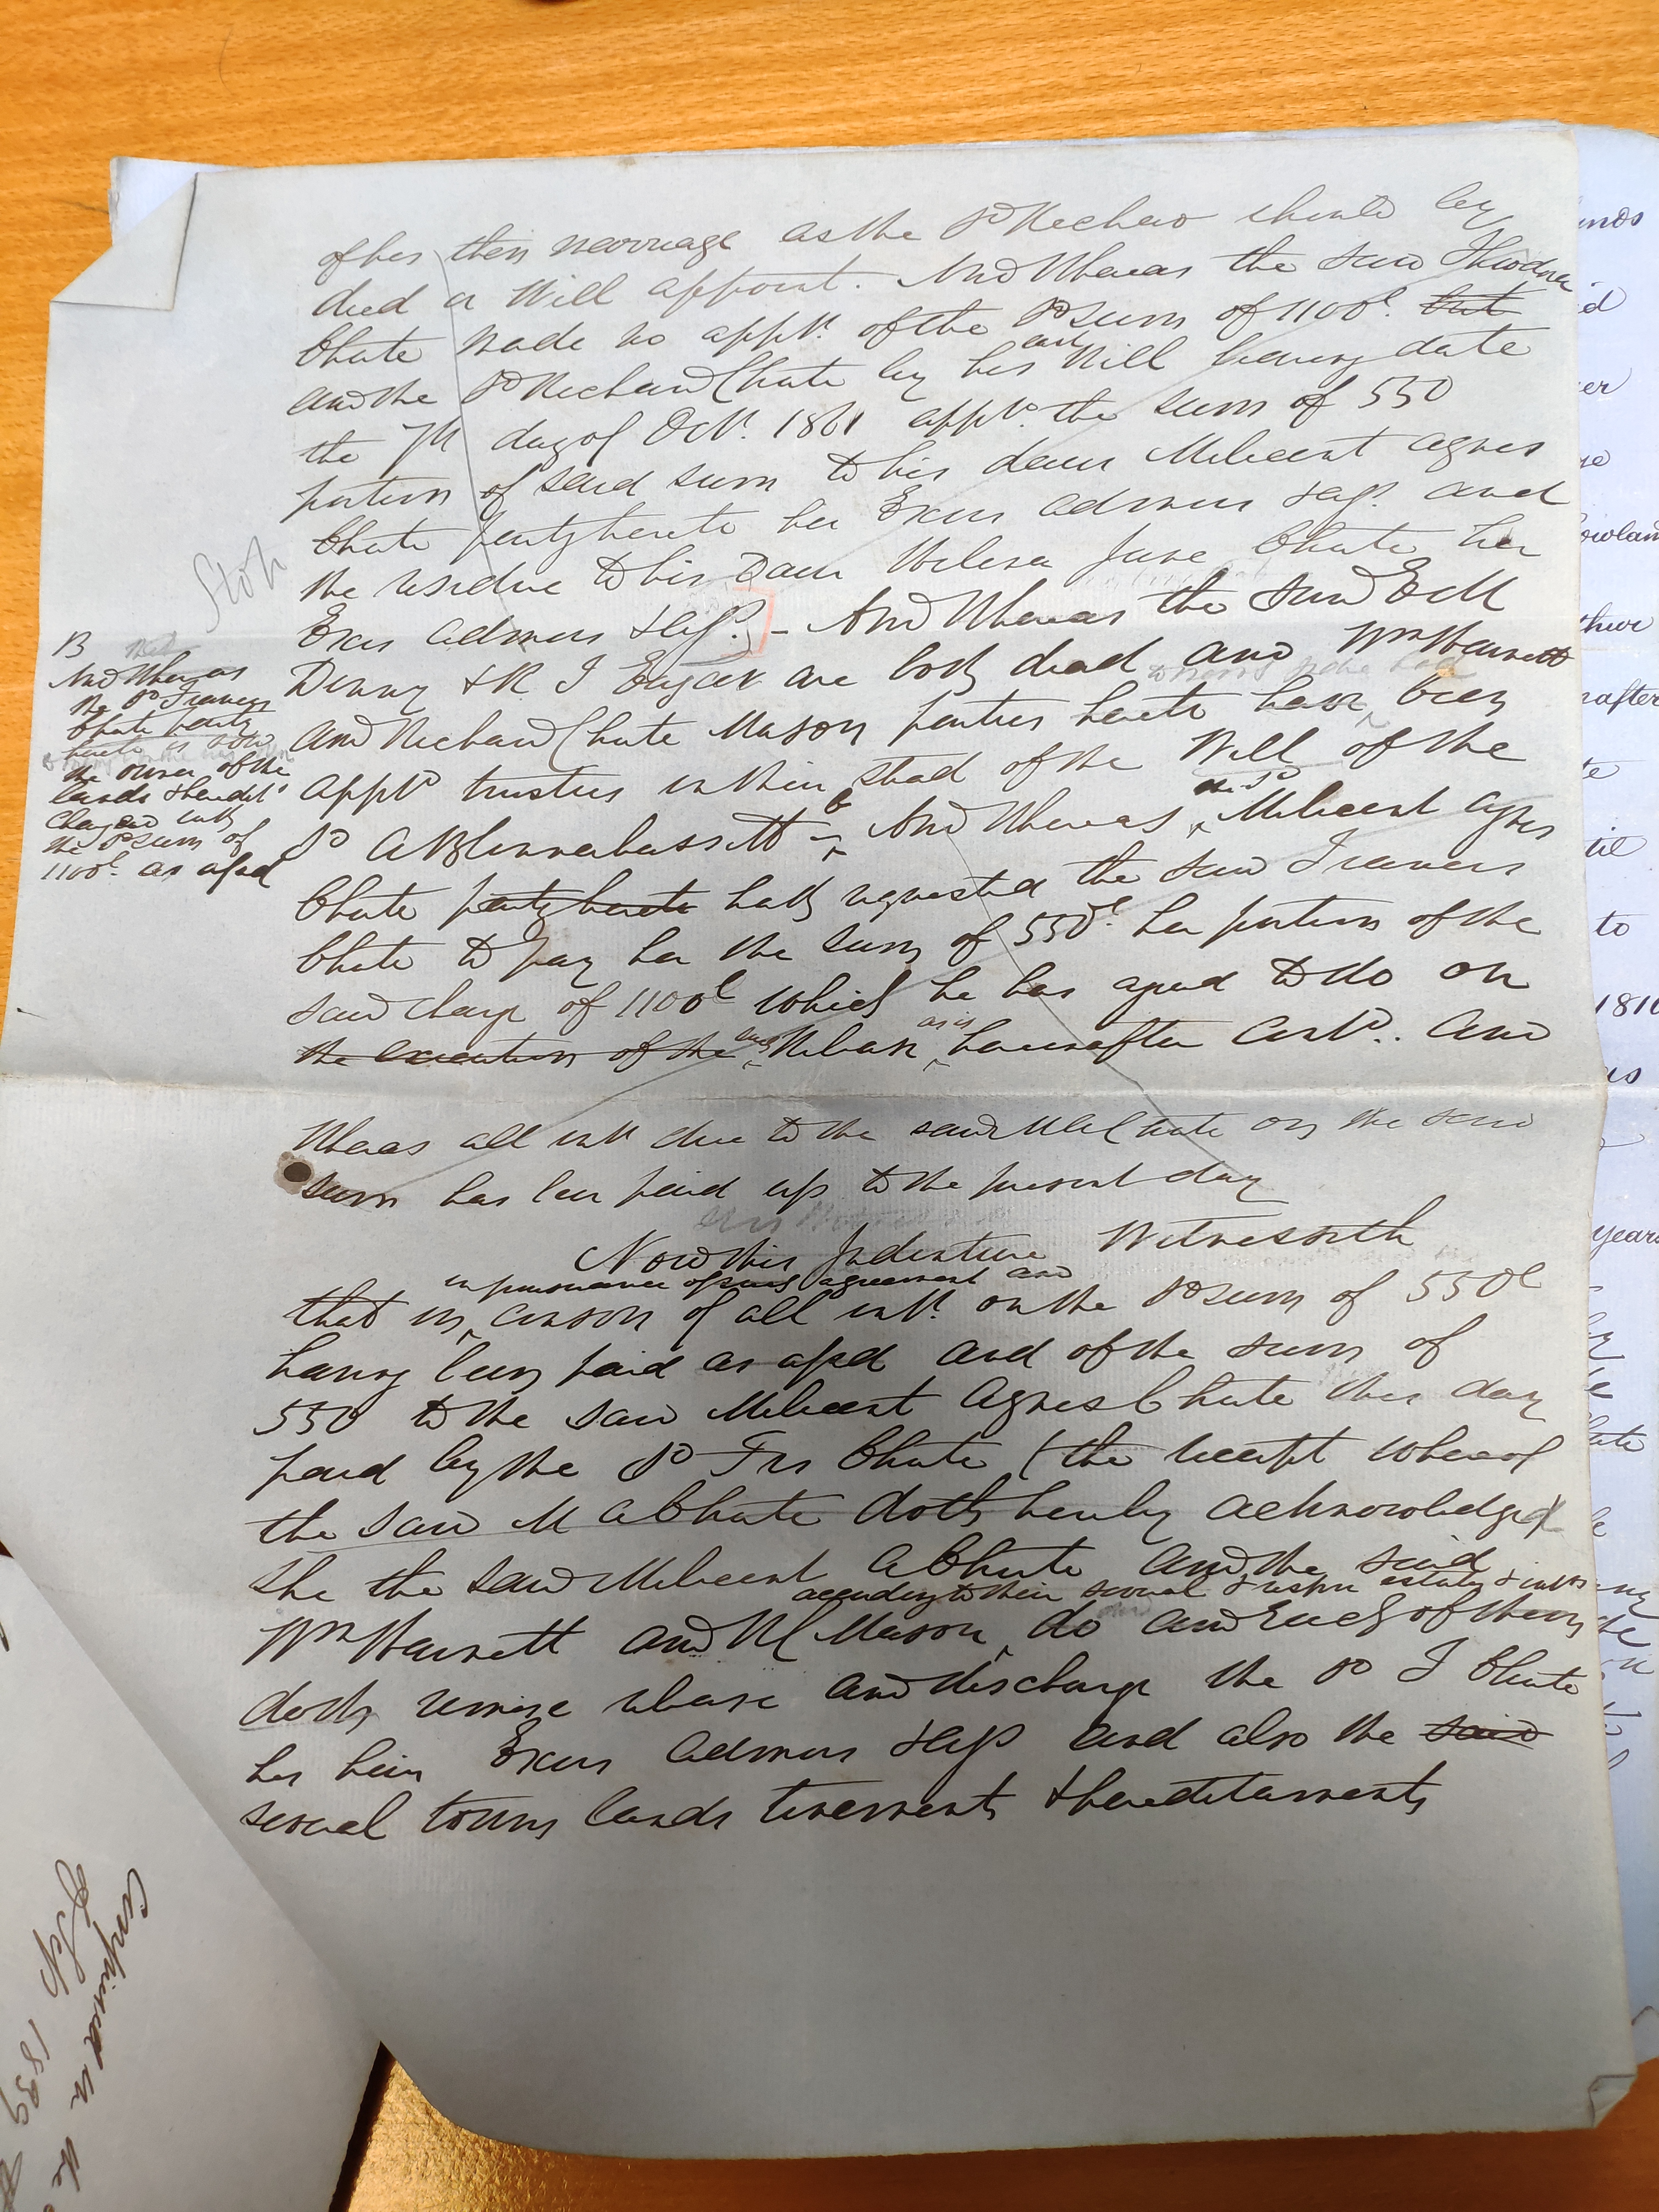 of his then marriage as the sd Richard should by
deed or Will appoint. And Whereas the said Theodora
Chute made no appt. of the sd sum of 1100l. but
and the sd Richard Chute by his last Will bearing date
the 7th day of Oct. 1861 apptd. the sum of 550
portion of said sum to his daur Milicent Agnes
Chute party hereto her Exors admors & ass. and
the residue to his Daur Jane Chute her
Exors admors & ass. - And Whereas the said
Denny & R J are both dead and Wm Harnett
and Richard Chute Mason parties hereto have been
apptd trustees in their stead of the Will of the
sd A Blennerhassett - And Whereas sd Milicent Agnes
Chute party hereto hath requested the said Francis
Chute to pay her the sum of 550l. her portion of the
said charge of 1100l which he has agreed to do on
the execution of the release as is hereinafter contd.. And
Stop
B
And Whereas
the sd Francis
Chute party
hereto is now
the owner of the
lands & heredits
charged with
the sd sum of
1100l. as afsd
Whereas all intt due to the said M A Chute on the said
sum has been paid up to the present day
Now this Indenture Witnesseth
in pursuance of said agreement and
that in conson of all intt. on the sd sum of 550l
having been paid as afsd and of the sum of
550 to the said Milicent Agnes Chute this day
paid by the sd Frs Chute (the receipt whereof
the said M A Chute doth hereby acknowledge)
she the said Milicent A Chute and the said
according to their several & respve estates & intts
Wm Harnett and R C Mason do and each of them
doth remise release and discharge the sd F Chute
his heirs Exors admors & ass and also the said
several towns lands tenements & hereditaments